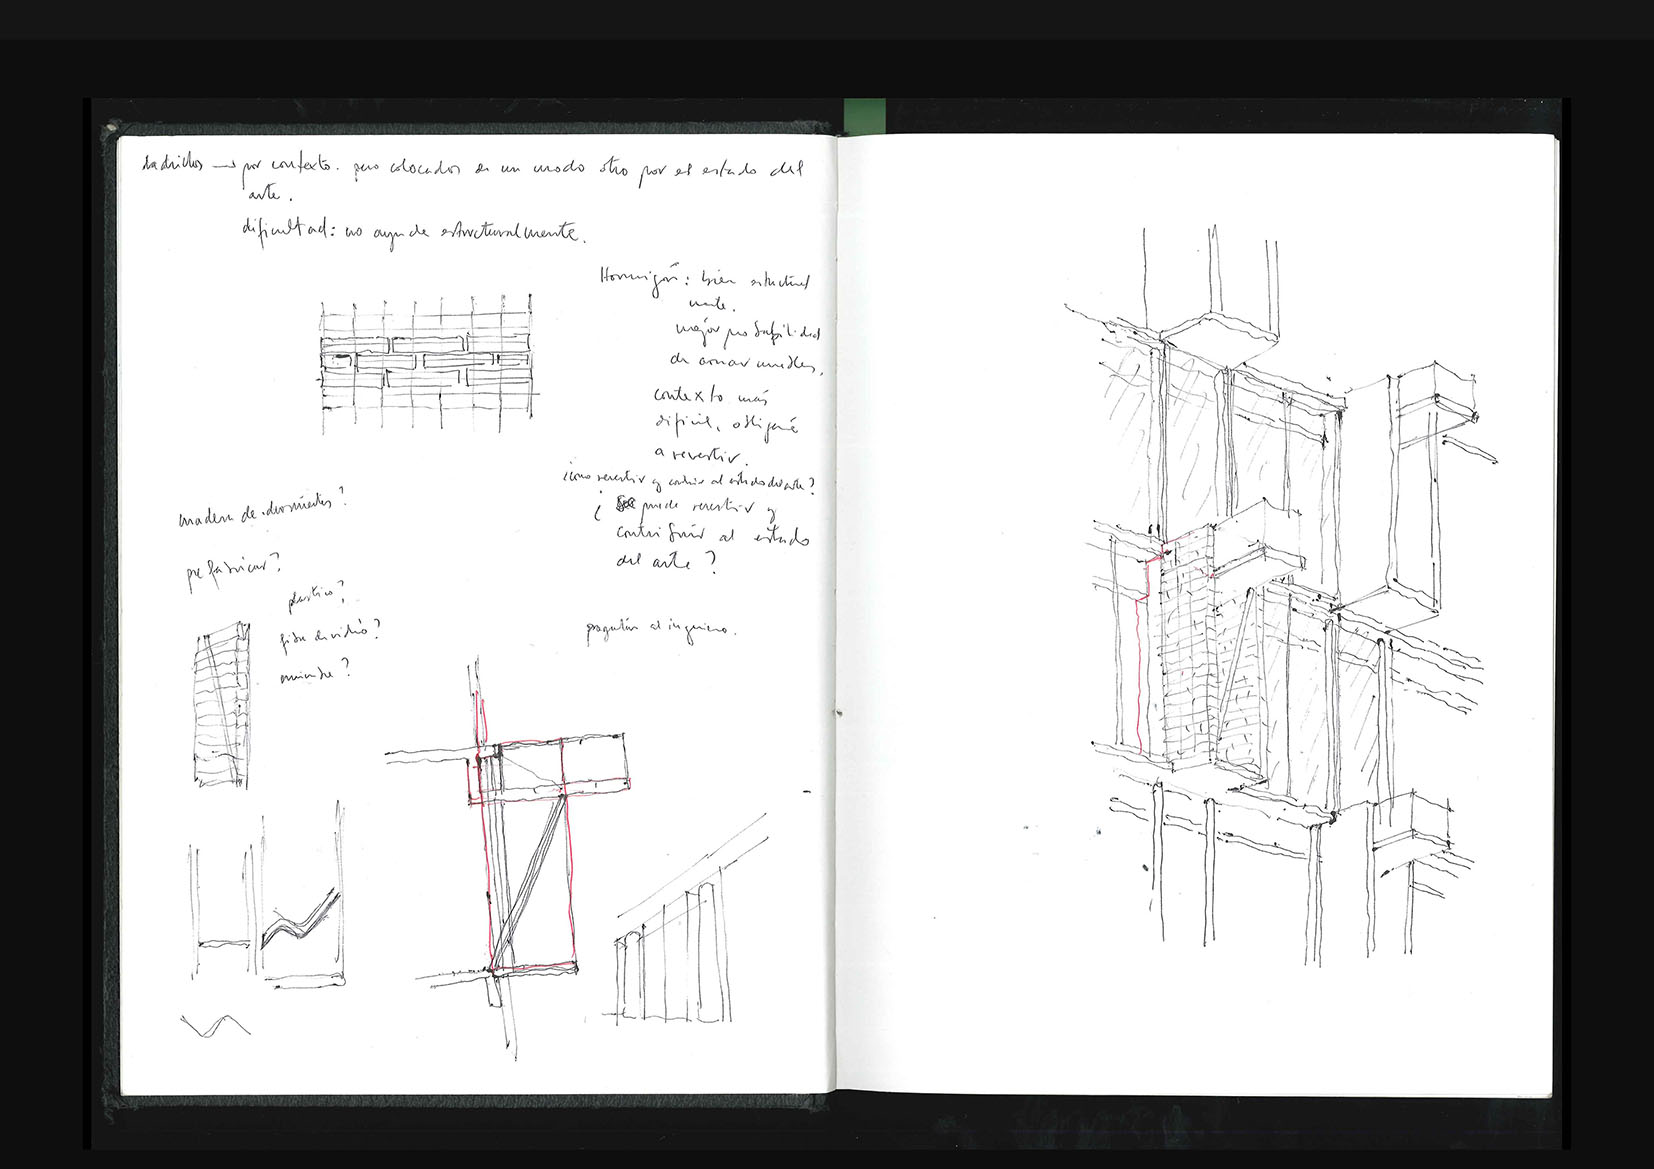 Ladrillos → por contexto. pero colocados de un modo otro por el estado del
arte.
dificultad: no ayuda estructuralmente.
Hormigón: bien estructural
mente.
mejor posibilidad
de armar
contexto más
difícil,
a revestir.
¿como revestir y contribuir al estado del arte?
¿ Se puede revestir y
contribuir al estado
del arte?
madera de durmientes?
prefabricar?
plastico?
fibra de vidrio?
preguntar al ingeniero.